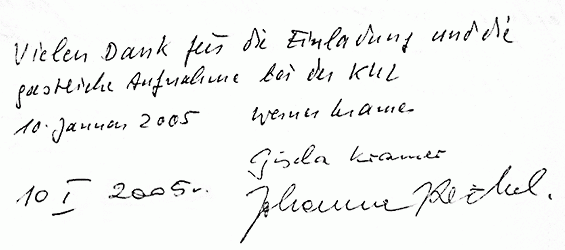 Vielen Dank für die Einladung und die
gastliche Aufnahme bei der KUL
10. Januar 2005 Werner Kramer
Gisela Kramer
10 I 2005r. Johanna